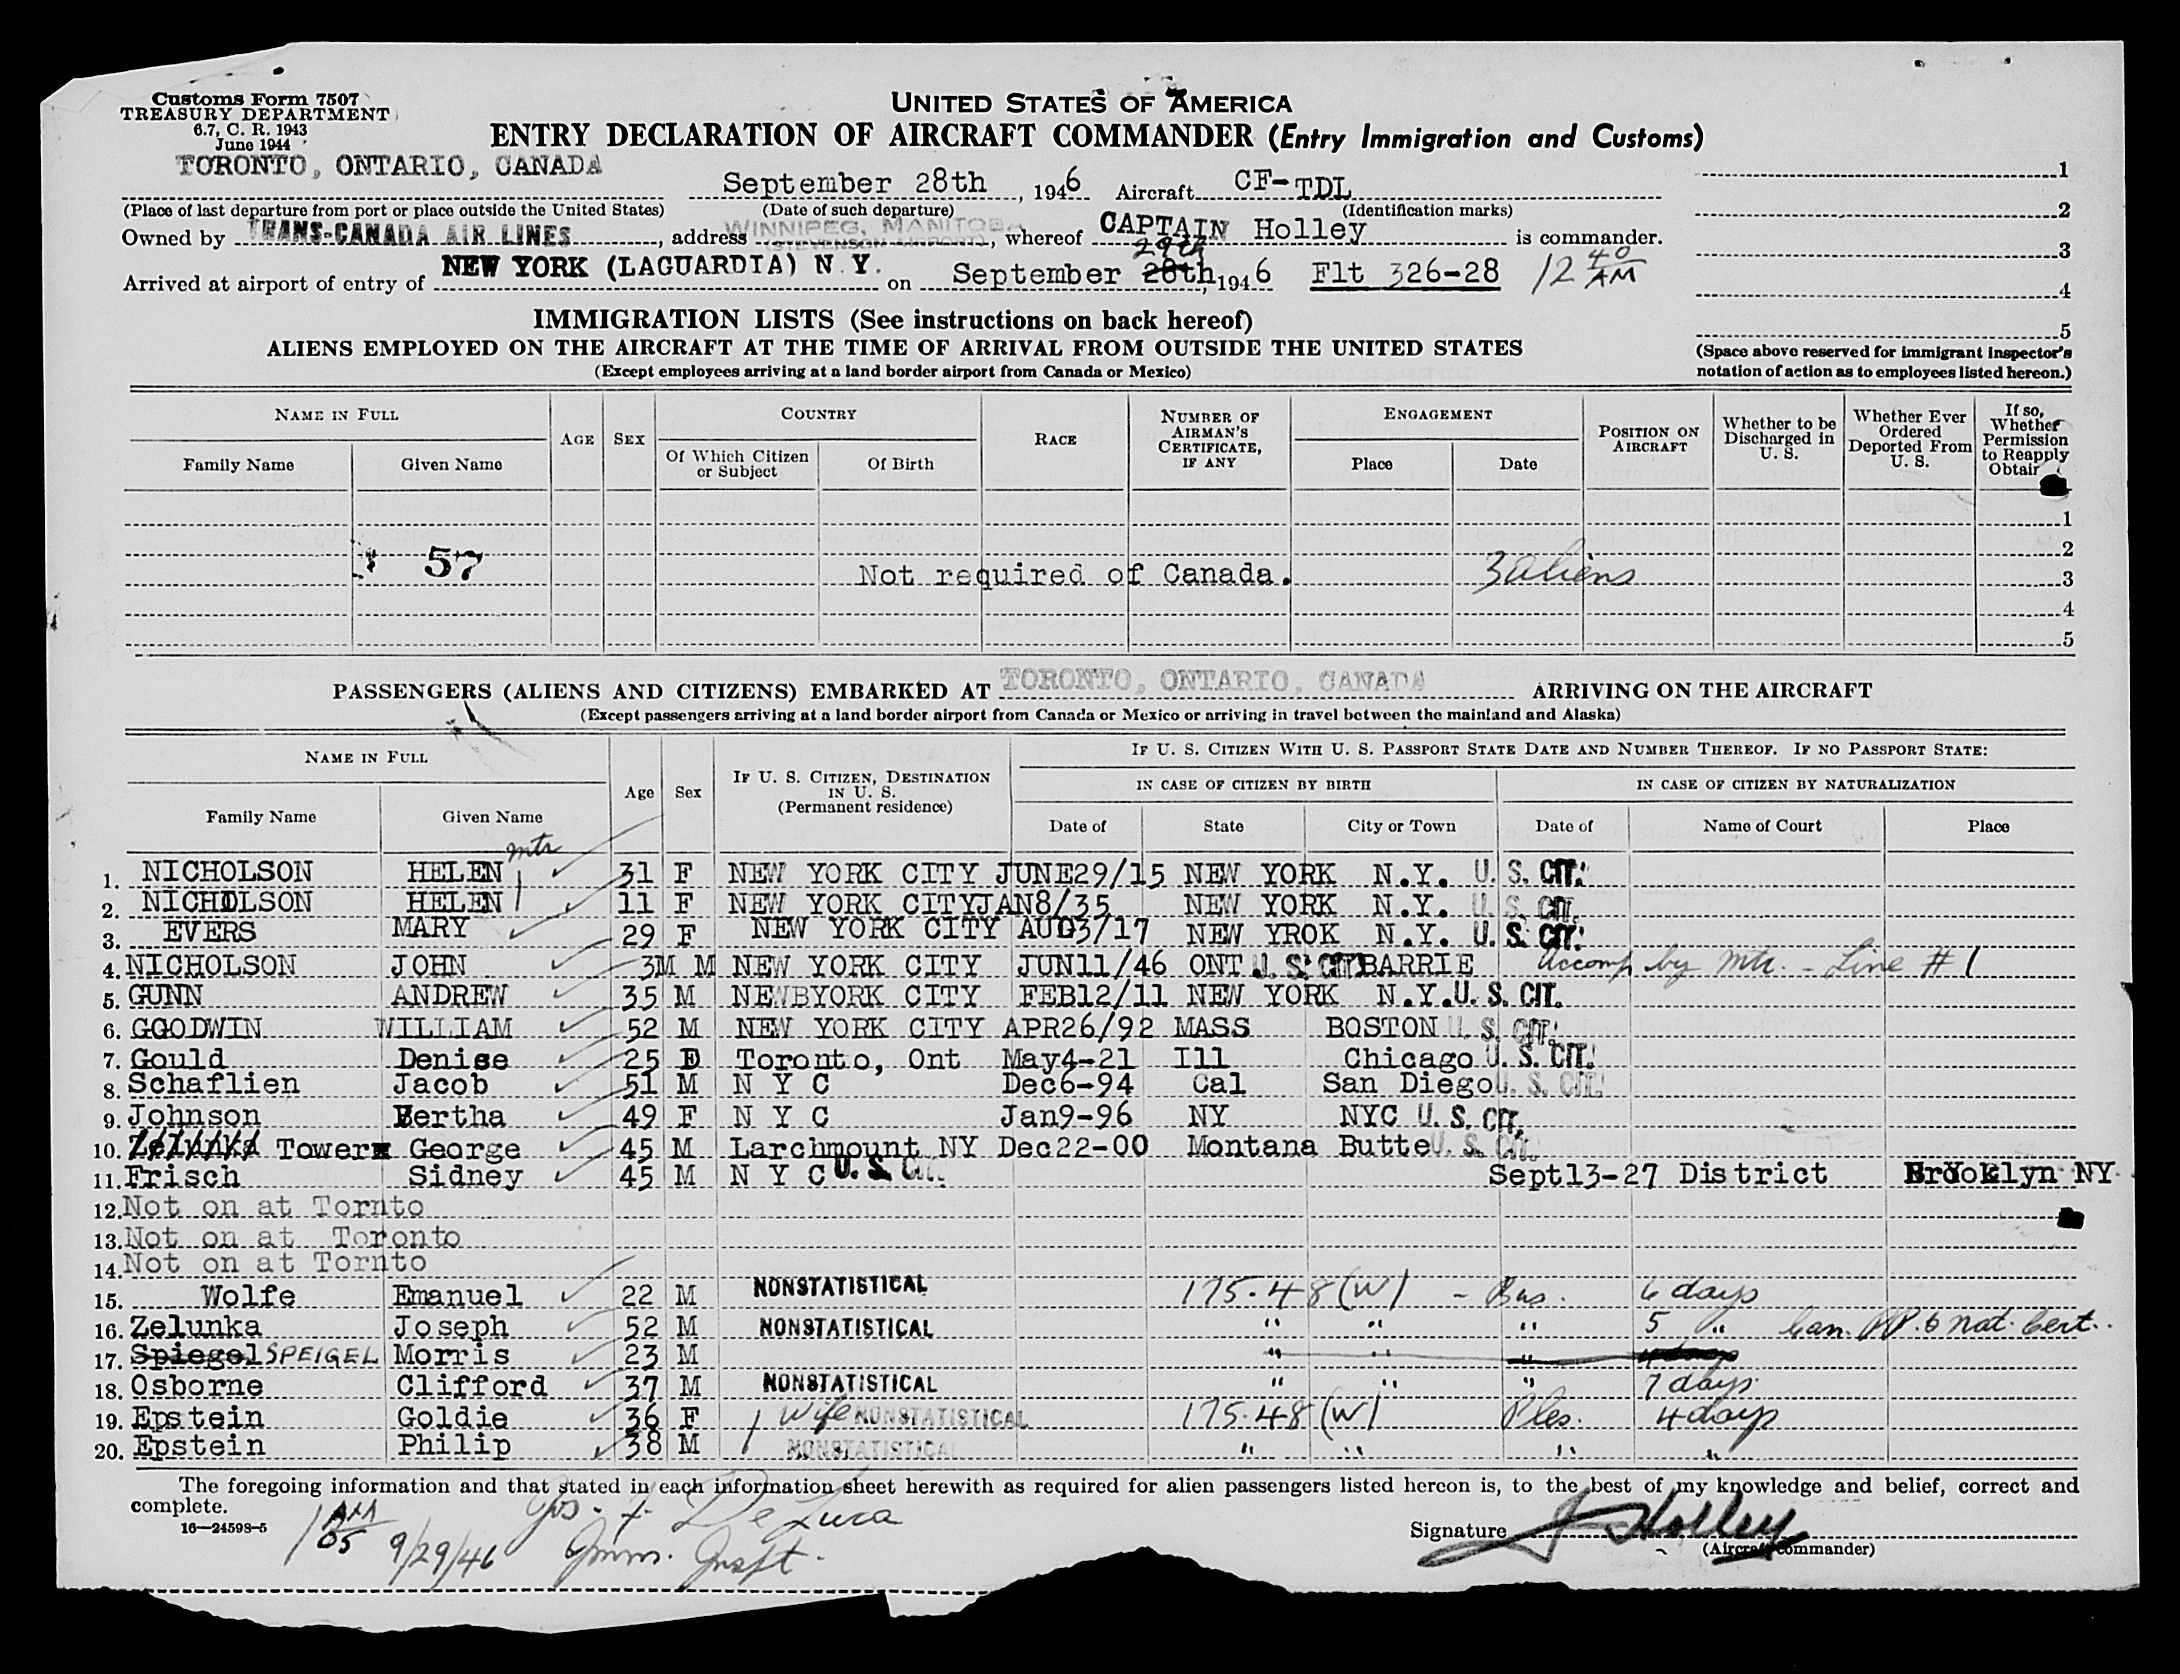 Customs Form 7507
TREASURY DEPARTMENT
6.7, C. R. 1943
June 1944
UNITED STATES OF AMERICA
ENTRY DECLARATION OF AIRCRAFT COMMANDER (Entry Immigration and Customs)
TORONTO, ONTARIO, CANADA September 28th, 1946 Aircraft CF-TDL
(Place of last departure from port or place outside the United States) (Date of such departure) (Identification marks)
Owned by TRANS-CANADA AIR LINES, address WINNIPEG, MANITOBA (STEVENSON AIRPORT), whereof CAPTAIN Holley is commander.
Arrived at airport of entry of NEW YORK (LAGUARDIA) N.Y. on September 28th 29th, 1946 Flt 326-28 12 40 AM
1
2
3
4
5
(Space above reserved for immigrant inspector's notation of action as to employees listed hereon.)
IMMIGRATION LISTS (See instructions on back hereof)
ALIENS EMPLOYED ON THE AIRCRAFT AT THE TIME OF ARRIVAL FROM OUTSIDE THE UNITED STATES
(Except employees arriving at a land border airport from Canada or Mexico)
NAME IN FULL AGE SEX COUNTRY RACE NUMBER OF AIRMAN'S CERTIFICATE, IF ANY ENGAGEMENT POSITION ON AIRCRAFT Whether to be Discharged in U. S. Whether Ever Ordered Deported From U. S. If so, Whether Permission to Reapply
Family Name Given Name Of Which Citizen or Subject Of Birth Place Date
1
2
57 Not required of Canada. 3 aliens 3
4
5
PASSENGERS (ALIENS AND CITIZENS) EMBARKED AT TORONTO, ONTARIO, CANADA ARRIVING ON THE AIRCRAFT
(Except passengers arriving at a land border airport from Canada or Mexico or arriving in travel between the mainland and Alaska)
NAME IN FULL Age Sex IF U. S. CITIZEN, DESTINATION IN U. S. (Permanent residence) IF U. S. CITIZEN WITH U. S. PASSPORT STATE DATE AND NUMBER THEREOF. IF NO PASSPORT STATE:
IN CASE OF CITIZEN BY BIRTH IN CASE OF CITIZEN BY NATURALIZATION
Family Name Given Name Date of State City or Town Date of Name of Court Place
1. NICHOLSON HELEN mtr 31 F NEW YORK CITY JUNE29/15 NEW YORK N.Y. U. S. CIT.
2. NICHOLSON HELEN 11 F NEW YORK CITY JAN8/35 NEW YORK N.Y. U. S. CIT.
3. EVERS MARY 29 F NEW YORK CITY AUG3/17 NEW YROK N.Y. U. S. CIT.
4. NICHOLSON JOHN 3M M NEW YORK CITY JUN11/46 ONT U. S. CIT BARRIE Accomp by mtr. - Line # 1
5. GUNN ANDREW 35 M NEWBYORK CITY FEB12/11 NEW YORK N.Y. U. S. CIT.
6. GGODWIN WILLIAM 52 M NEW YORK CITY APR26/92 MASS BOSTON U. S. CIT.
7. Gould Denise 25 F Toronto, Ont May4-21 Ill Chicago U. S. CIT.
8. Schaflien Jacob 51 M N Y C Dec6-94 Cal San Diego U. S. CIT.
9. Johnson Bertha 49 F N Y C Jan9-96 NY NYC U. S. CIT.
10. Zelunka Tower George 45 M Larchmount NY Dec22-00 Montana Butte U. S. CIT.
11. Frisch Sidney 45 M N Y C U. S. CIT. Sept13-27 District Brooklyn NY
12. Not on at Tornto
13. Not on at Toronto
14. Not on at Tornto
15. Wolfe Emanuel 22 M NONSTATISTICAL 175.48 (W) - Bus. 6 days
16. Zelunka Joseph 52 M NONSTATISTICAL " " " 5 " Can. PP. & nat. Cert.
17. Spiegel SPEIGEL Morris 23 M " " "
18. Osborne Clifford 37 M NONSTATISTICAL " " " 7 days
19. Epstein Goldie 36 F wife NONSTATISTICAL 175.48 (W) Ples. 4 days
20. Epstein Philip 38 M NONSTATISTICAL " " " "
The foregoing information and that stated in each information sheet herewith as required for alien passengers listed hereon is, to the best of my knowledge and belief, correct and
complete.
16—24598-5
1 AM 05 9/29/46 Jos. F. De Luca
Imm. Inspt.
Signature J Holley
(Aircraft commander)